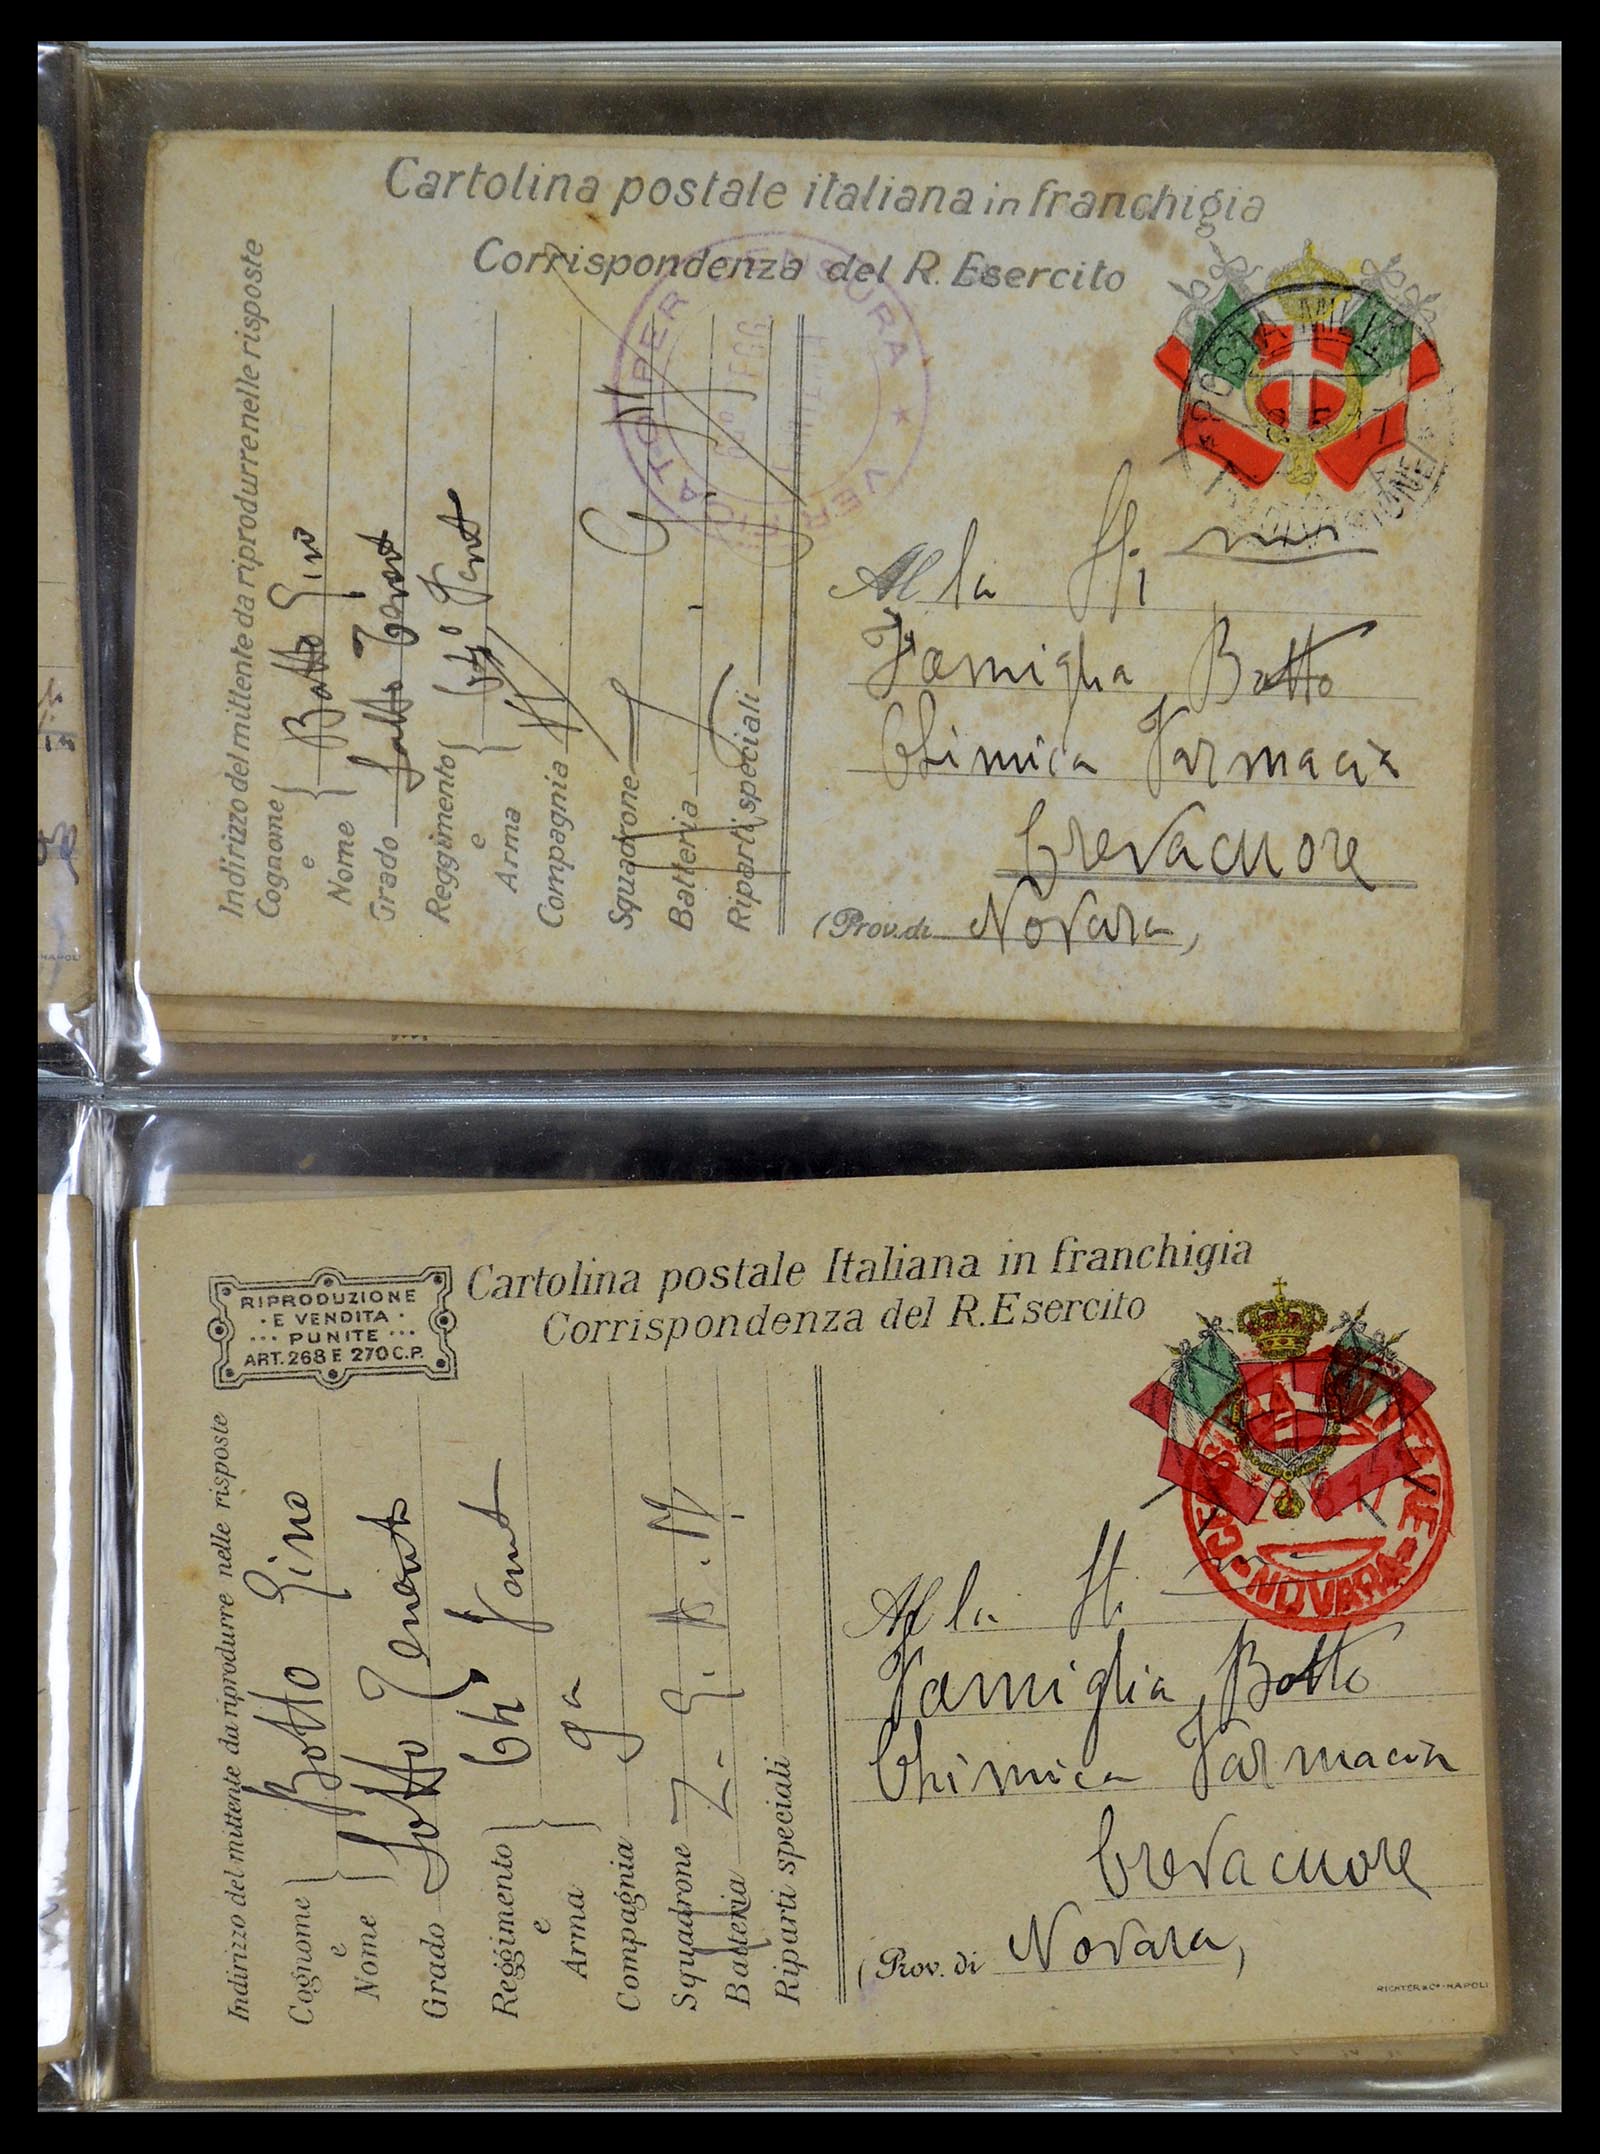 Cartolina postale italiana in franchigia
Corrispondenza del R. Esercito
Indirizzo del mittente da riprodurre nelle risposte
Cognome
e
Nome
Botto Gino
Grado
Sotto Tenent
Reggimento
e
Arma
64° Fant
Compagnia
Squadrone
Batteria
Riparti speciali
VERIFICATO PER CENSURA
POSTA MILITARE
8.5.17
Alla
Famiglia Botto
Chimica Farmacia
Crevacuore
(Prov. di Novara,
RIPRODUZIONE
E VENDITA
PUNITE
ART. 268 E 270 C.P.
Cartolina postale Italiana in franchigia
Corrispondenza del R. Esercito
Indirizzo del mittente da riprodurre nelle risposte
Cognome
e
Nome
Botto Gino
Grado
Sotto Tenente
Reggimento
e
Arma
64 Fant
Compagnia
9a
Squadrone
Batteria
Z.
Riparti speciali
NOVARA
Alla
Famiglia Botto
Chimica Farmacia
Crevacuore
(Prov. di Novara,
RICHTER & Co - NAPOLI